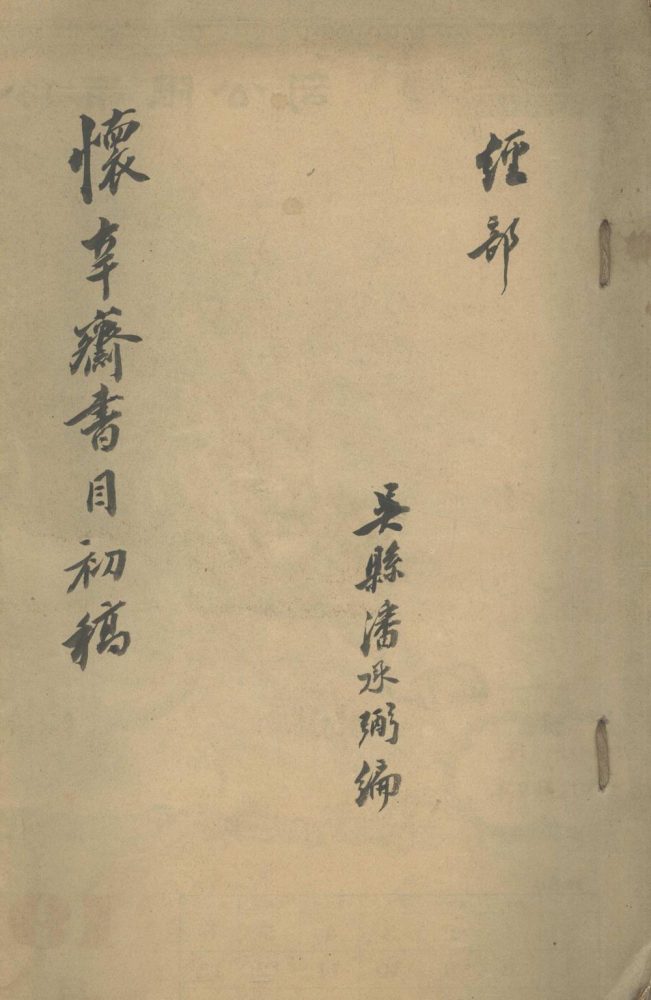 經部
吴縣潘承弼編
懷辛齋書目初稿